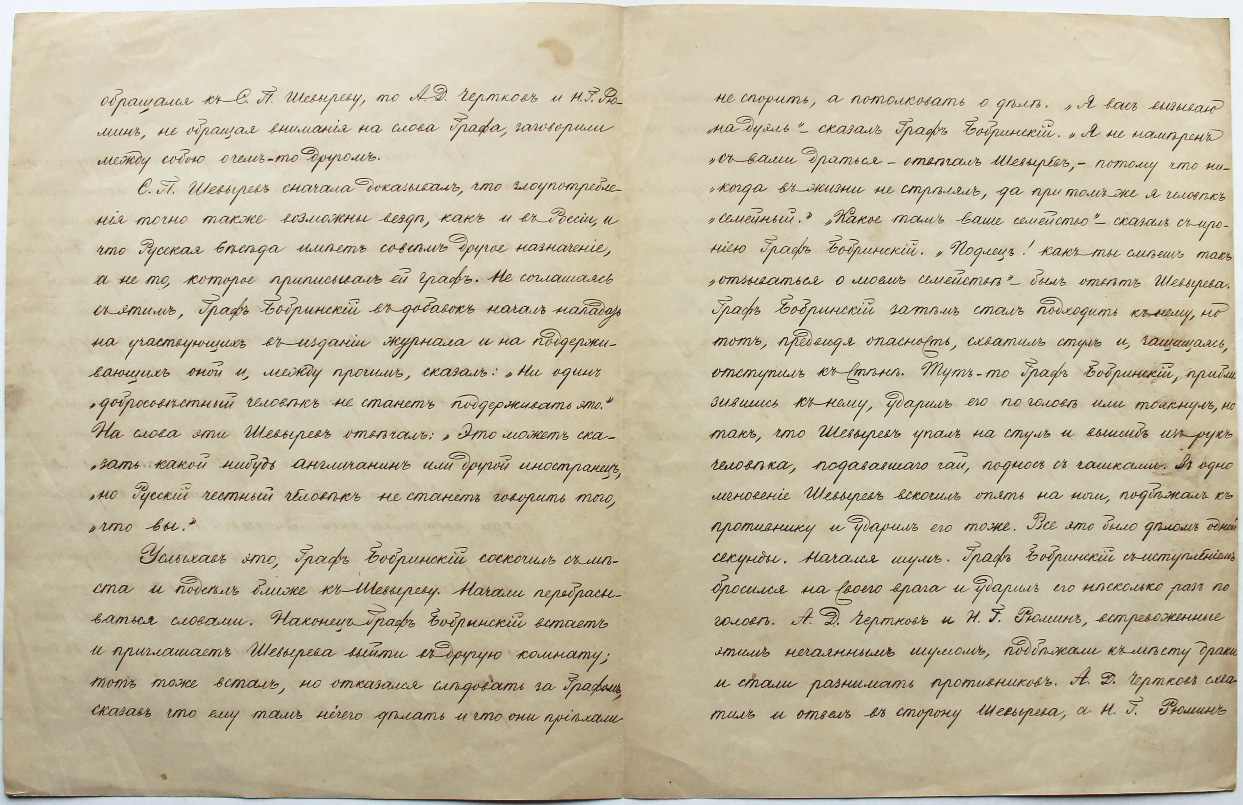 обращался къ С. П. Шевыреву, то А. Д. Чертковъ и Н. Г. Рю-
минъ, не обращая вниманія на слова Графа, заговорили
между собою о чемъ-то другомъ.
С. П. Шевыревъ сначала доказывалъ, что злоупотребле-
нія точно также возможны вездѣ, какъ и въ Россіи, и
что Русская Бесѣда имѣетъ совсѣмъ другое назначеніе,
а не то, которое приписывалъ ей Графъ. Не соглашаясь
съ этимъ, Графъ Бобринскій въ добавокъ началъ нападать
на участвующихъ въ изданіи журнала и на поддержи-
вающихъ оной и, между прочимъ, сказалъ: „Ни одинъ
„добросовѣстный человѣкъ не станетъ поддерживать это."
На слова эти Шевыревъ отвѣчалъ: „Это можетъ ска-
„зать какой нибудь англичанинъ или другой иностранецъ,
„но Русскій честный человѣкъ не станетъ говорить того,
„что вы."
Услыхавъ это, Графъ Бобринскій соскочилъ съ мѣ-
ста и подсѣлъ ближе къ Шевыреву. Начали перебрасы-
ваться словами. Наконецъ Графъ Бобринскій встаетъ
и приглашаетъ Шевырева выйти въ другую комнату;
тотъ тоже всталъ, но отказался слѣдовать за Графомъ,
сказавъ что ему тамъ нечего дѣлать и что они пріѣхали
не спорить, а потолковать о дѣлѣ. „Я васъ вызываю
„на дуэль" – сказалъ Графъ Бобринскій. „Я не намѣренъ
„съ вами драться – отвѣчалъ Шевыревъ, – потому что ни-
„когда въ жизни не стрѣлялъ, да при томъ же я человѣкъ
„семейный." „Какое тамъ ваше семейство" – сказалъ съ иро-
ніею Графъ Бобринскій. „Подлецъ! какъ ты смѣешь такъ
„отзываться о моемъ семействѣ" – былъ отвѣтъ Шевырева.
Графъ Бобринскій затѣмъ сталъ подходить къ нему, но
тотъ, предвидя опасность, схватилъ стулъ и, защищаясь,
отступилъ къ стѣнѣ. Тутъ-то Графъ Бобринскій, прибли
зившись къ нему, ударилъ его по головѣ или толкнулъ, но
такъ, что Шевыревъ упалъ на стулъ и вышибъ изъ рукъ
человѣка, подававшаго чай, подносъ съ чашками. Въ одно
мгновеніе Шевыревъ вскочилъ опять на ноги, подбѣжалъ къ
противнику и ударилъ его тоже. Все это было дѣломъ одной
секунды. Начался шумъ. Графъ Бобринскій съ изступленіемъ
бросился на своего врага и ударилъ его нѣсколько разъ по
головѣ. А. Д. Чертковъ и Н. Г. Рюминъ, встревоженные
этимъ нечаяннымъ шумомъ, подбѣжали къ мѣсту драки
и стали разнимать противниковъ. А. Д. Чертковъ схва
тилъ и отвелъ въ сторону Шевырева, а Н. Г. Рюминъ